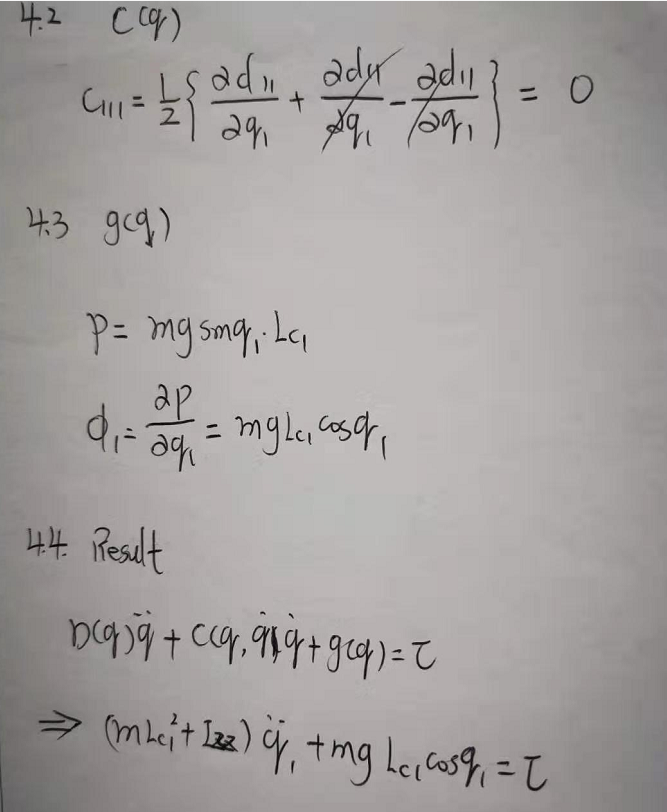 4.2 C(q)
C₁₁₁ = 1/2 { ∂d₁₁/∂q₁ + ∂d₁₁/∂q₁ - ∂d₁₁/∂q₁ } = 0
4.3 g(q)
P = mg sinq₁ · Lc₁
ϕ₁ = ∂P/∂q₁ = mgLc₁ cosq₁
4.4. Result
D(q)q̈ + C(q, q̇)q̇ + g(q) = τ
⇒ (mLc₁² + Izz) q̈₁ + mg Lc₁ cosq₁ = τ